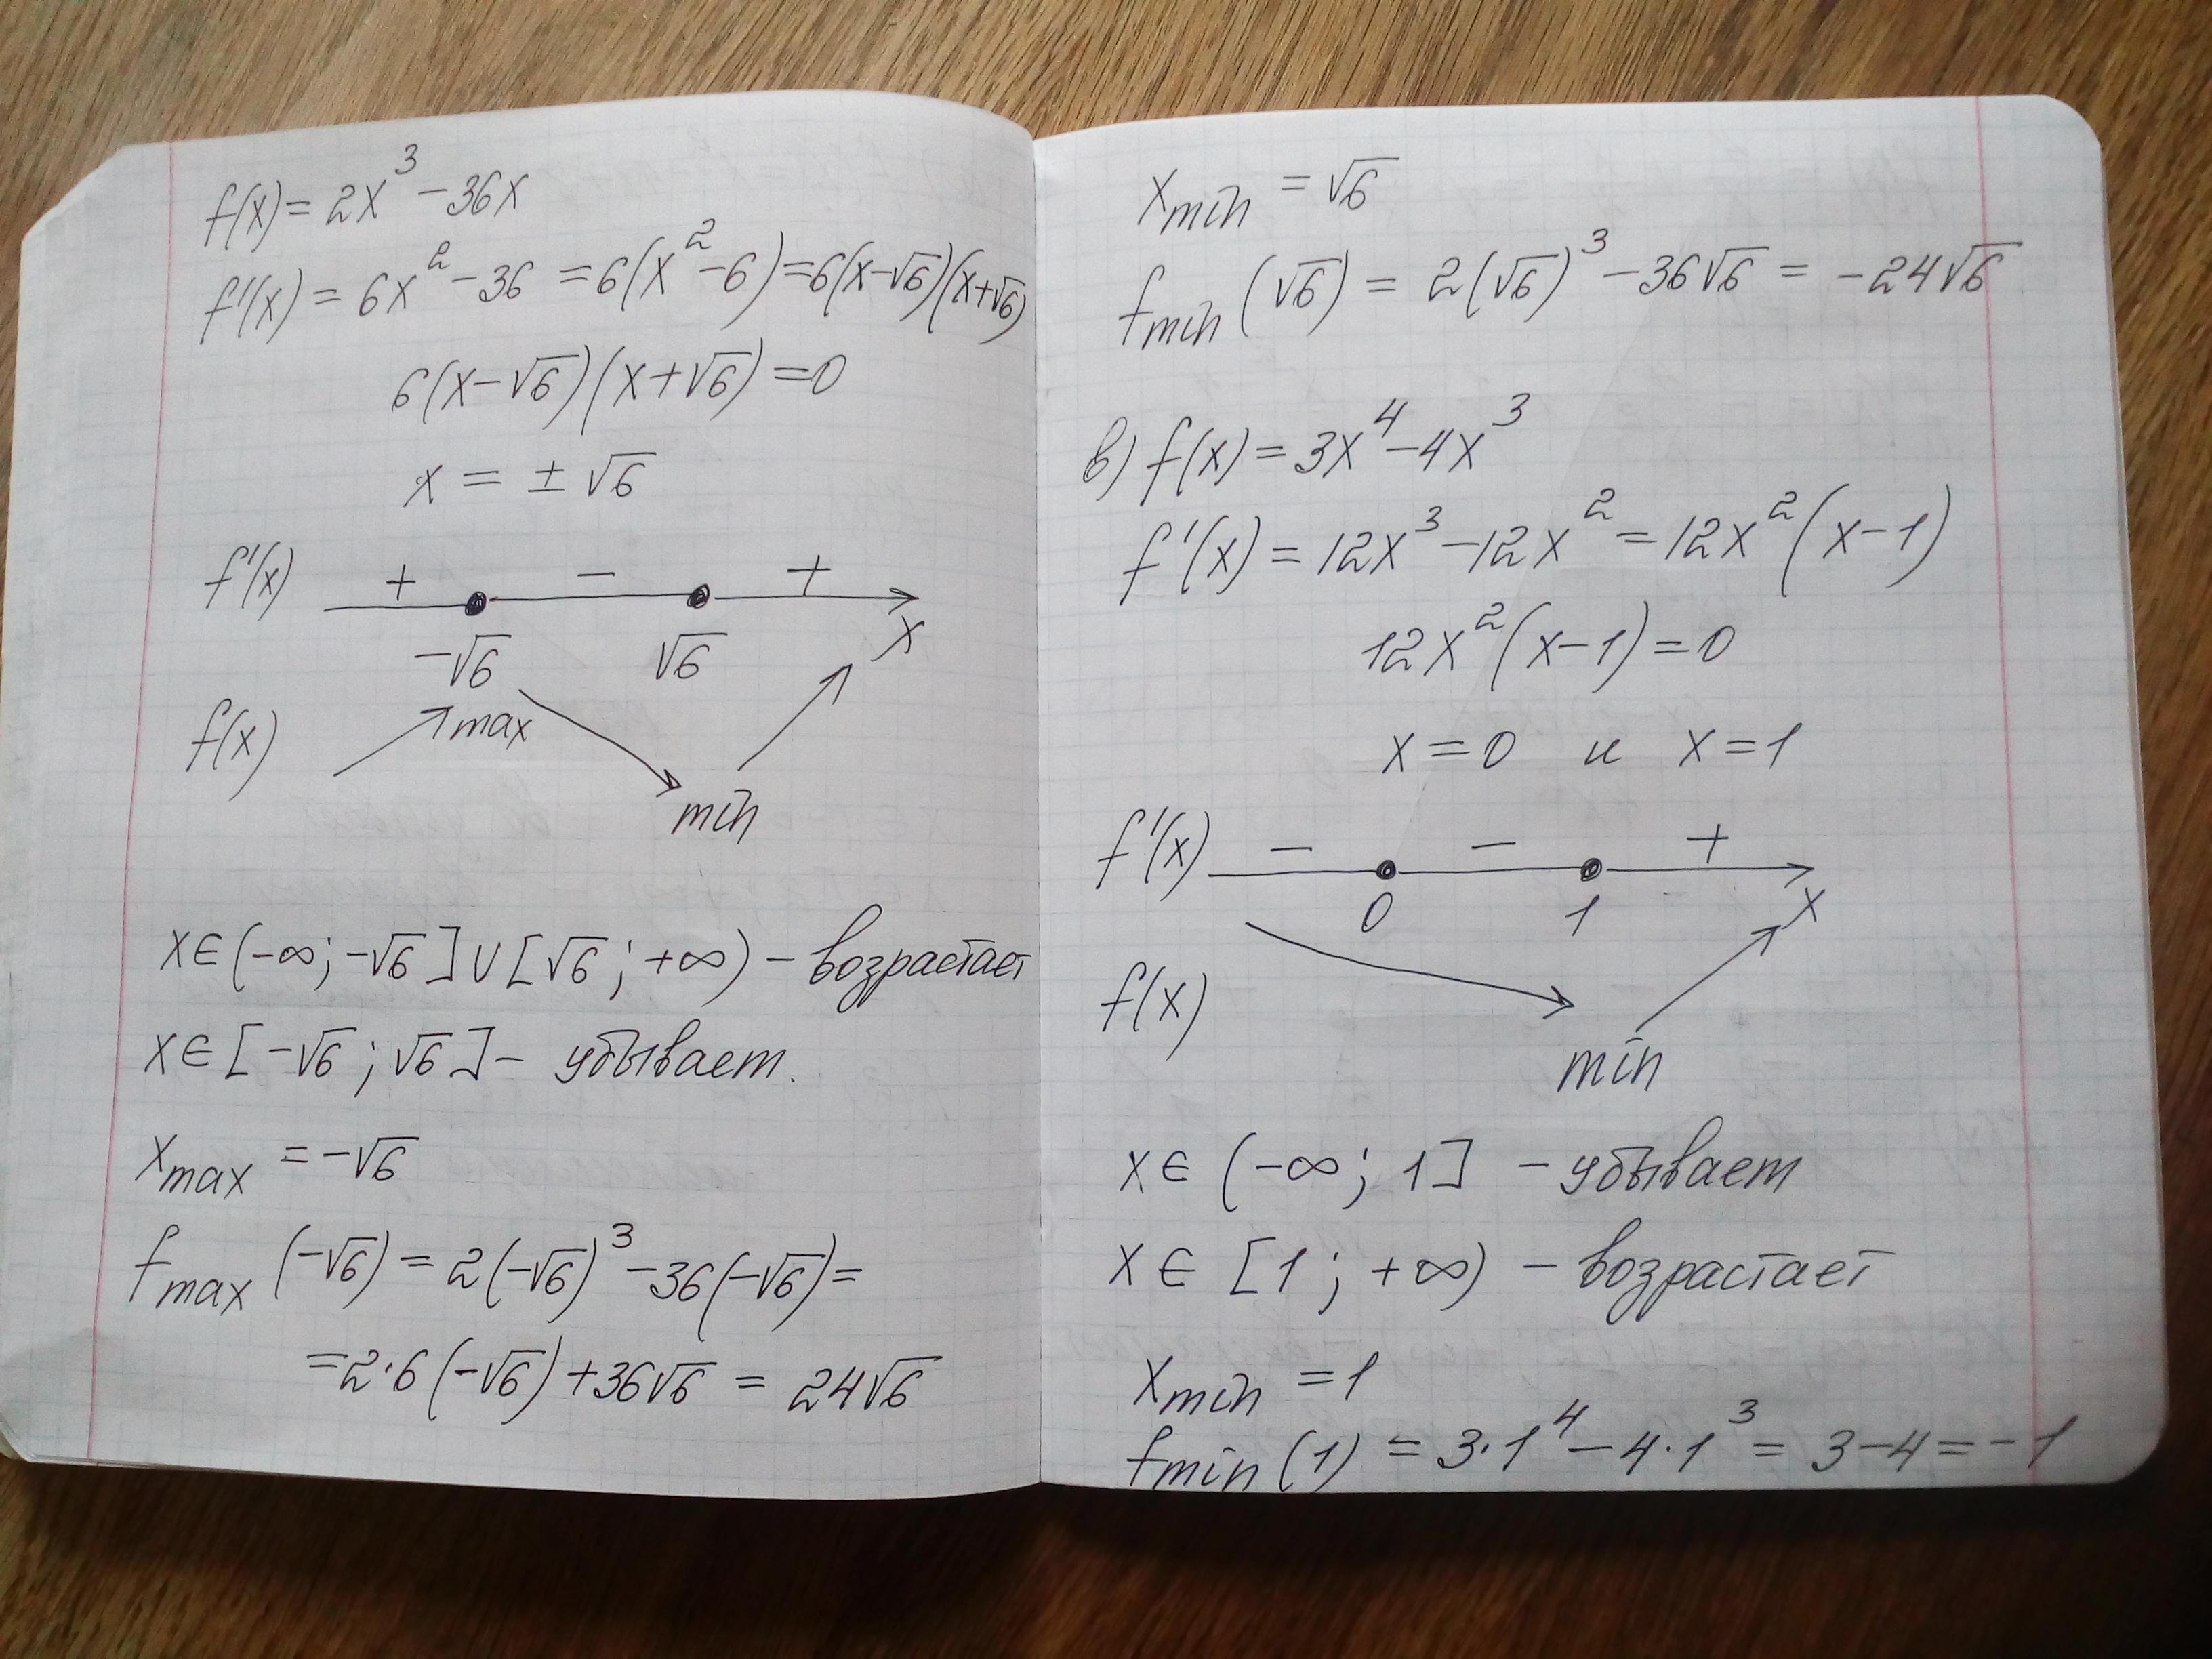 f(x) = 2x³ - 36x
f'(x) = 6x² - 36 = 6(x² - 6) = 6(x - √6)(x + √6)
6(x - √6)(x + √6) = 0
x = ± √6
f'(x) + - +
-√6 √6 x
f(x) max
min
x ∈ (-∞; -√6] ∪ [√6; +∞) - возрастает
x ∈ [-√6; √6] - убывает.
x max = -√6
f max (-√6) = 2(-√6)³ - 36(-√6) =
= 2·6(-√6) + 36√6 = 24√6
x min = √6
f min (√6) = 2(√6)³ - 36√6 = -24√6
в) f(x) = 3x⁴ - 4x³
f'(x) = 12x³ - 12x² = 12x²(x - 1)
12x²(x - 1) = 0
x = 0 и x = 1
f'(x) - - +
0 1 x
f(x)
min
x ∈ (-∞; 1] - убывает
x ∈ [1; +∞) - возрастает
x min = 1
f min (1) = 3·1⁴ - 4·1³ = 3 - 4 = -1